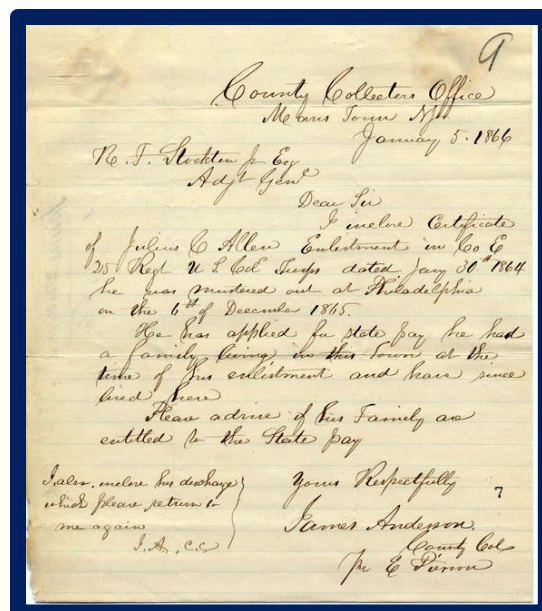 9
County Collectors Office
Morris Town NJ
January 5. 1866
R. F. Stockton Jr Esq
Adjt Genl
Dear Sir
I inclose Certificate
of Julius C Allen Enlistment in Co E
25 Regt U S Cold Troops dated Jany 30th 1864
he was mustered out at Philadelphia
on the 6th of December 1865.
He has applied for state pay he had
a family living in this Town at the
time of his enlistment and have since
lived here
Please advise if his Family are
entitled to the State pay
Yours Respectfully
James Anderson.
County Col
Pr E Pierson
I also inclose his discharge
which please return to
me again
J. A. C.C.